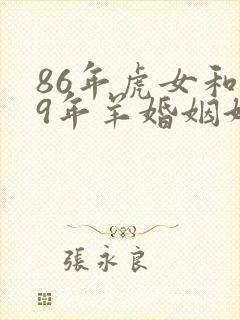 86年虎女和
9年羊婚姻
張永良